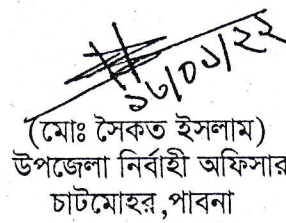 ১৬/০১/২২
(মোঃ সৈকত ইসলাম)
উপজেলা নির্বাহী অফিসার
চাটমোহর,পাবনা